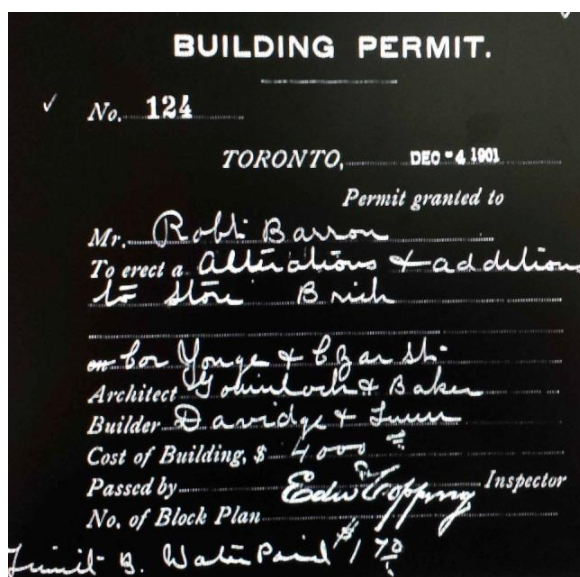 BUILDING PERMIT.
No. 124
TORONTO, DEC -4 1901
Permit granted to
Mr. Robt Barron
To erect a Alterations & additions
to Store Brick
on Cor Yonge & Czar St.
Architect Gouinlock & Baker
Builder Davidge & Lunn
Cost of Building, $ 4000
Passed by Edw Copping Inspector
No. of Block Plan
B. Water Paid $1 70